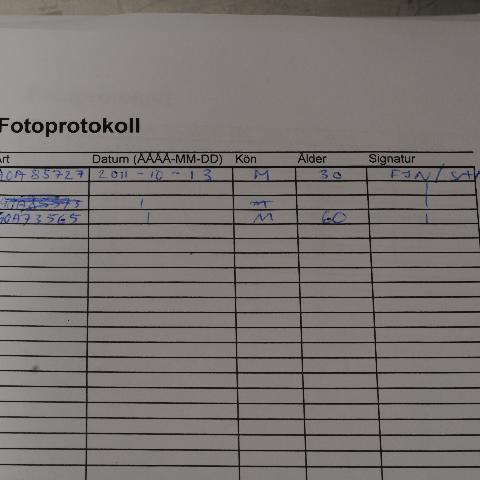 Fotoprotokoll
Art Datum (ÅÅÅÅ-MM-DD) Kön Ålder Signatur
2011-10-13 M 30 FJN/
M
60A73565 M 60